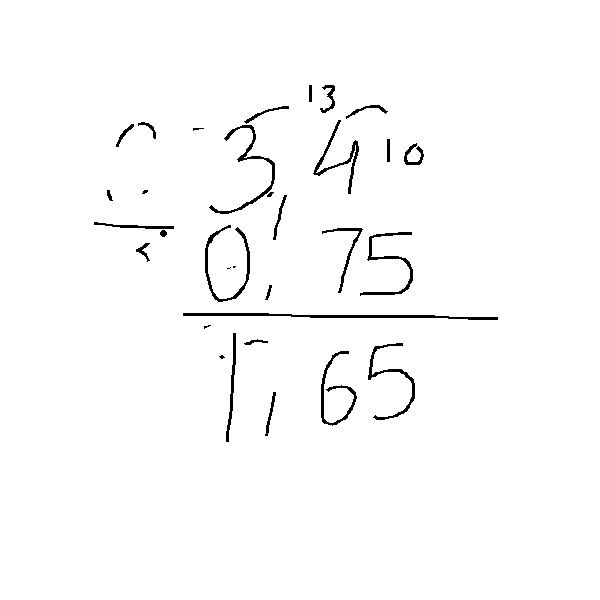 13
3,4 10
0,75
1,65